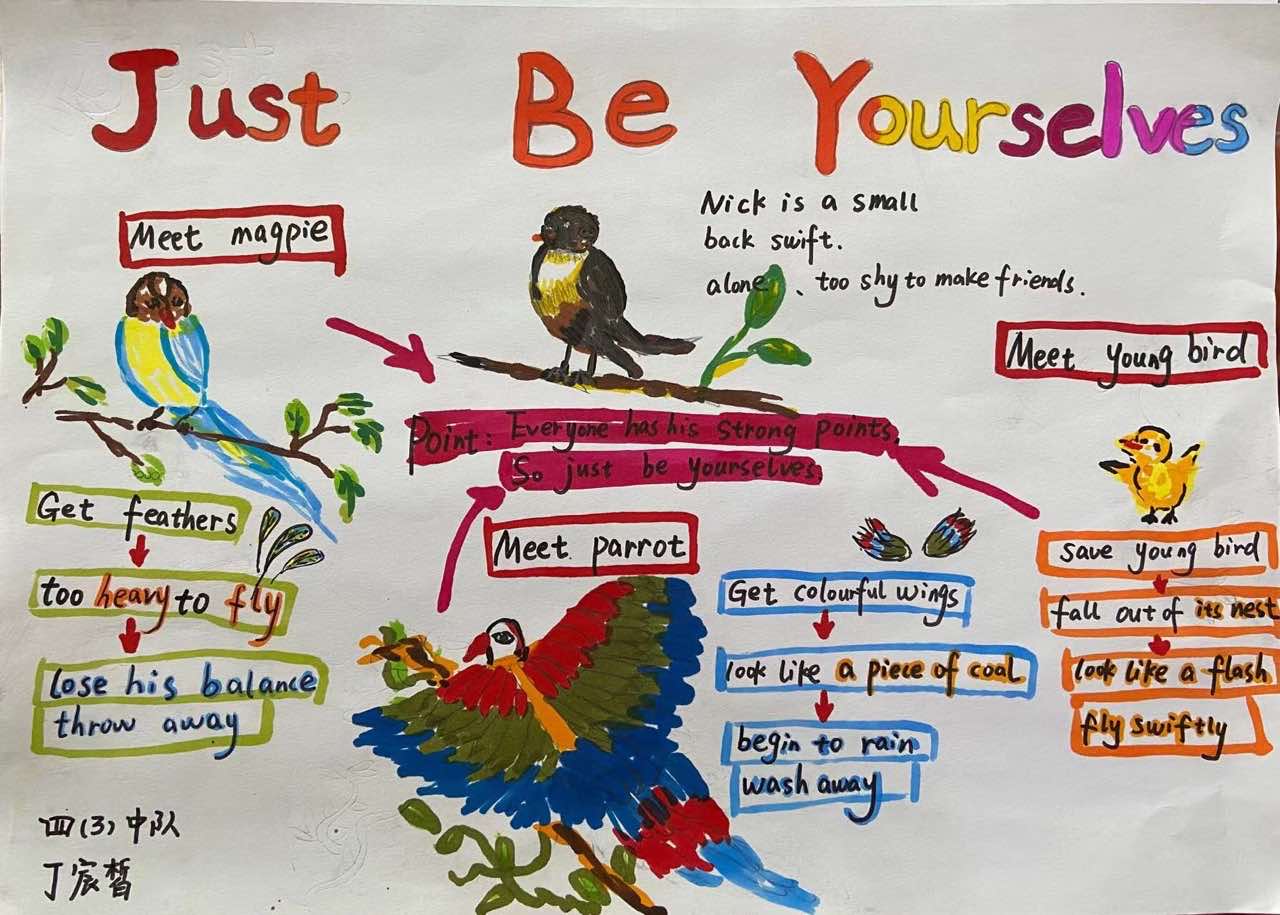 Just Be Yourselves
Nick is a small
back swift.
alone、too shy to make friends.
Meet magpie
Get feathers
too heavy to fly
lose his balance
throw away
Point: Everyone has his strong points,
So just be yourselves.
Meet parrot
Get colourful wings
look like a piece of coal
begin to rain
wash away
Meet young bird
save young bird
fall out of its nest
look like a flash
fly swiftly
四(3)中队
丁宸皙